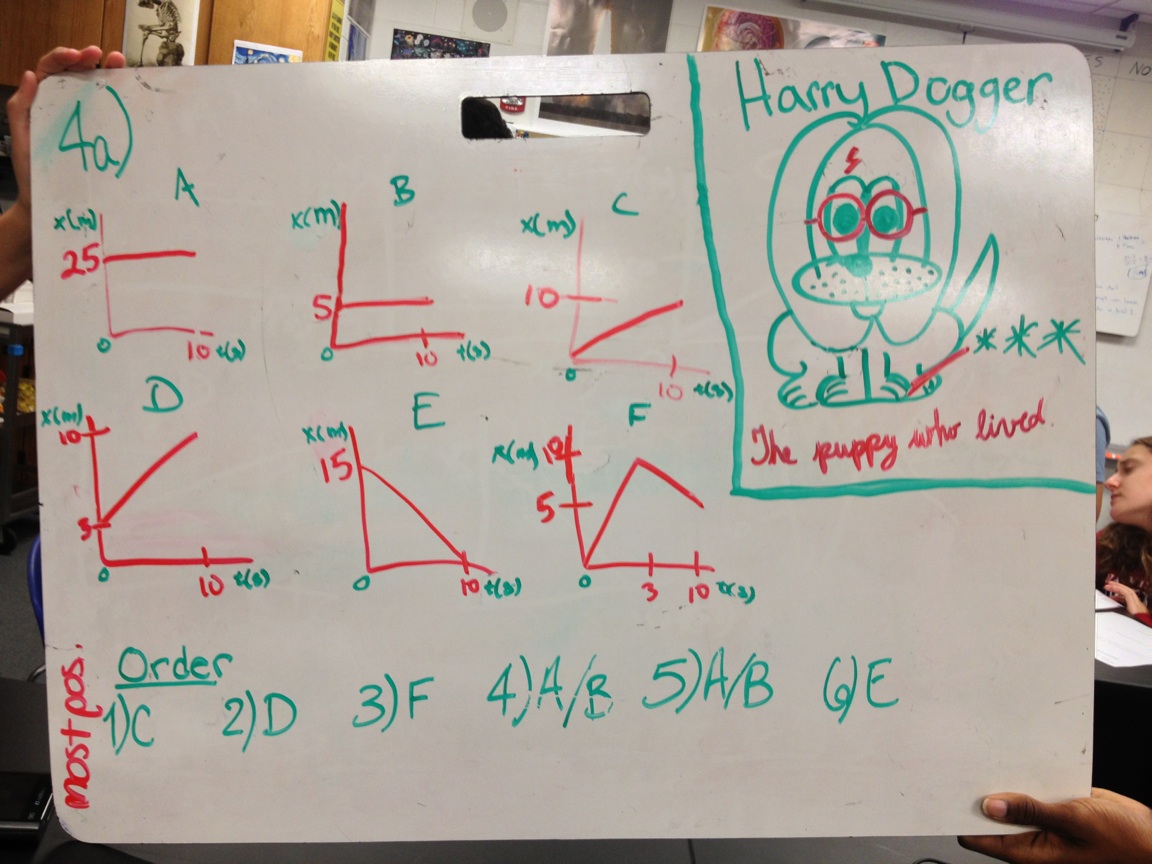 4a)
Harry Dogger
A
x(m)
25
0
10 t(s)
B
x(m)
5
0
10 t(s)
C
x(m)
10
0
10 t(s)
***
The puppy who lived.
D
x(m)
10
3
0
10 t(s)
E
x(m)
15
0
10 t(s)
F
x(m)
5
0
3 10 t(s)
most pos.
Order
1)C 2)D 3)F 4)A/B 5)A/B 6)E